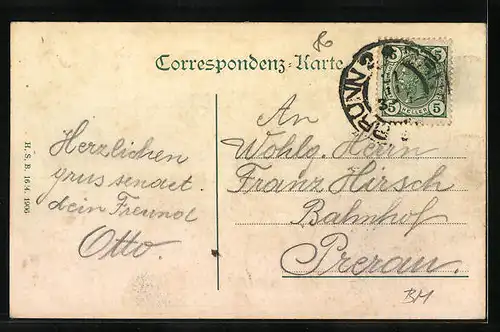 Correspondenz-Karte
BRÜNN 2
5 5
HELLER
5 5
Herzlichen
grus sendet
dein Freund
Otto.
An
Wohlg. Herrn
Franz Hirsch
Bahnhof
Prerau.
H. S. B. 16/4. 1906
BM